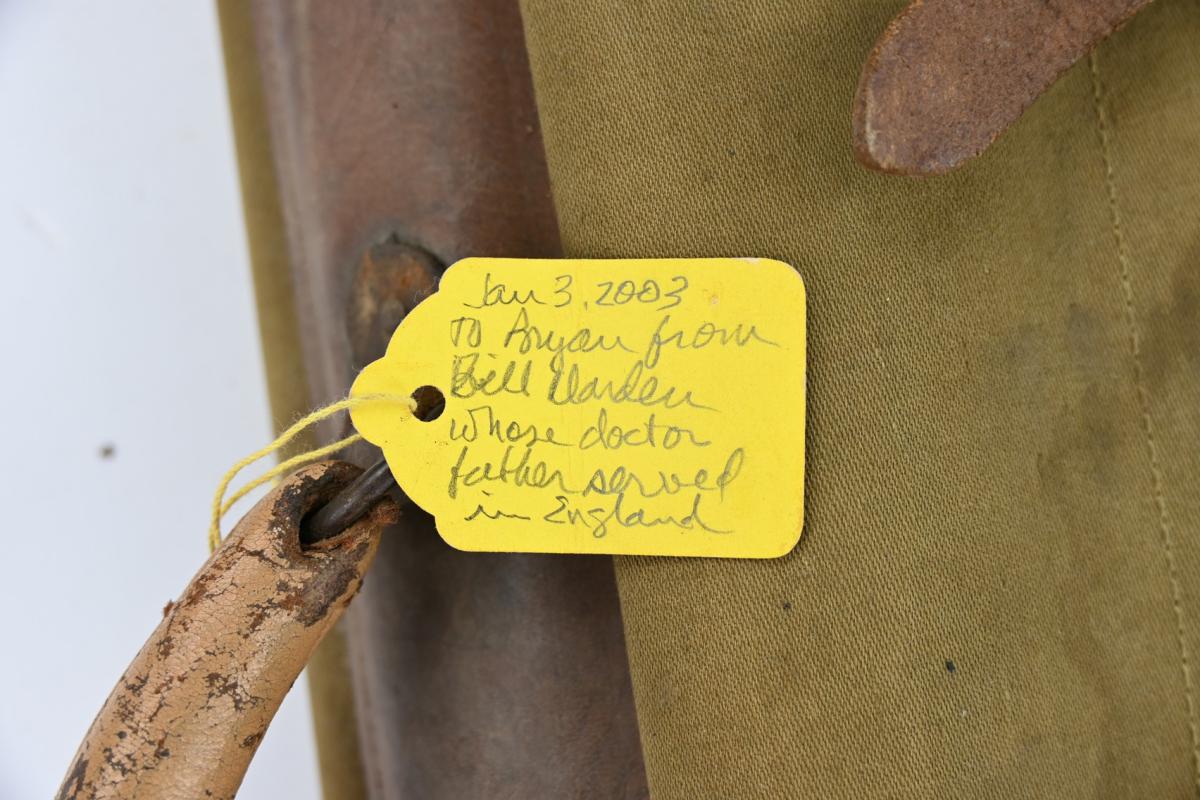 Jan 3, 2003
To Bryan from
Bill Varden
whose doctor
father served
in England